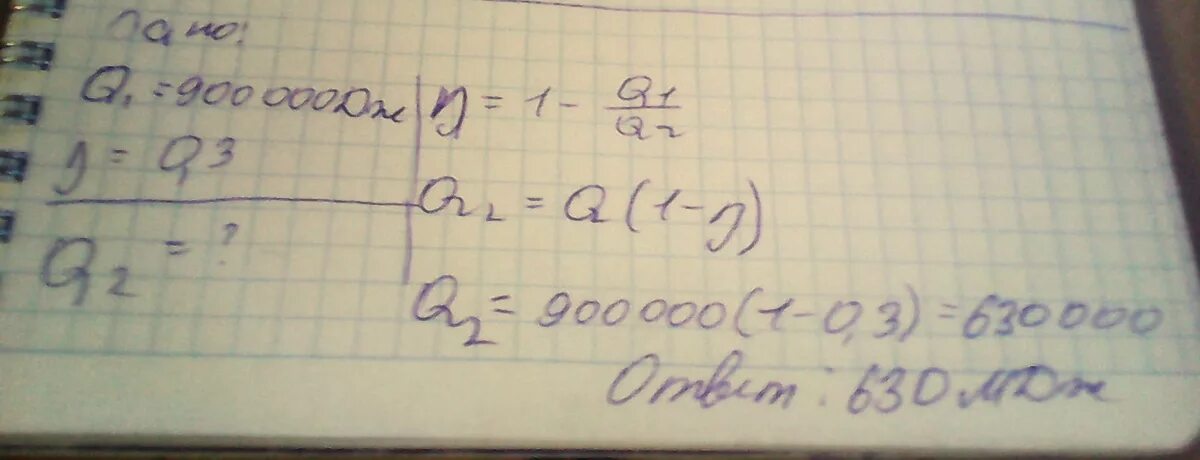 Дано:
Q₁ = 900 000 Дж
η = 0,3
Q₂ = ?
η = 1 - Q1/Q2
Q₂ = Q (1-η)
Q₂ = 900 000 (1-0,3) = 630 000
Ответ: 630 МДж